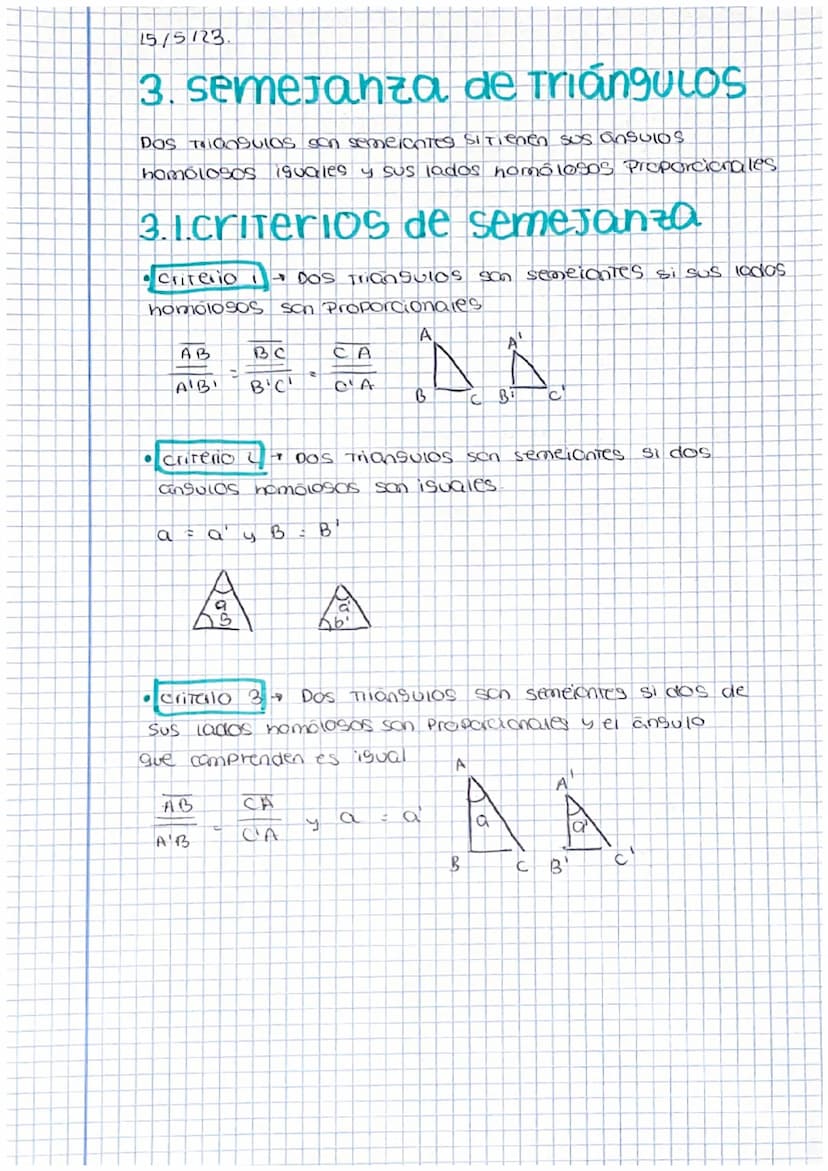 15/5/23.
3. semejanza de Triángulos
Dos Triángulos son semejantes si Tienen sus ángulos
homólogos iguales y sus lados homólogos Proporcionales
3.1. criterios de semejanza
• criterio 1 → Dos Triángulos son semejantes si sus lados
homólogos son Proporcionales
AB BC CA
= =
A'B' B'C' C'A
A A'
B C B' C'
• criterio 2 → Dos Triángulos son semejantes si dos
ángulos homólogos son iguales.
a = a' y B = B'
a a'
B b'
• criterio 3 → Dos Triángulos son semejantes si dos de
sus lados homólogos son Proporcionales y el ángulo
que comprenden es igual
A A'
AB CA
= y a = a'
A'B C'A
a a'
B C B' C'